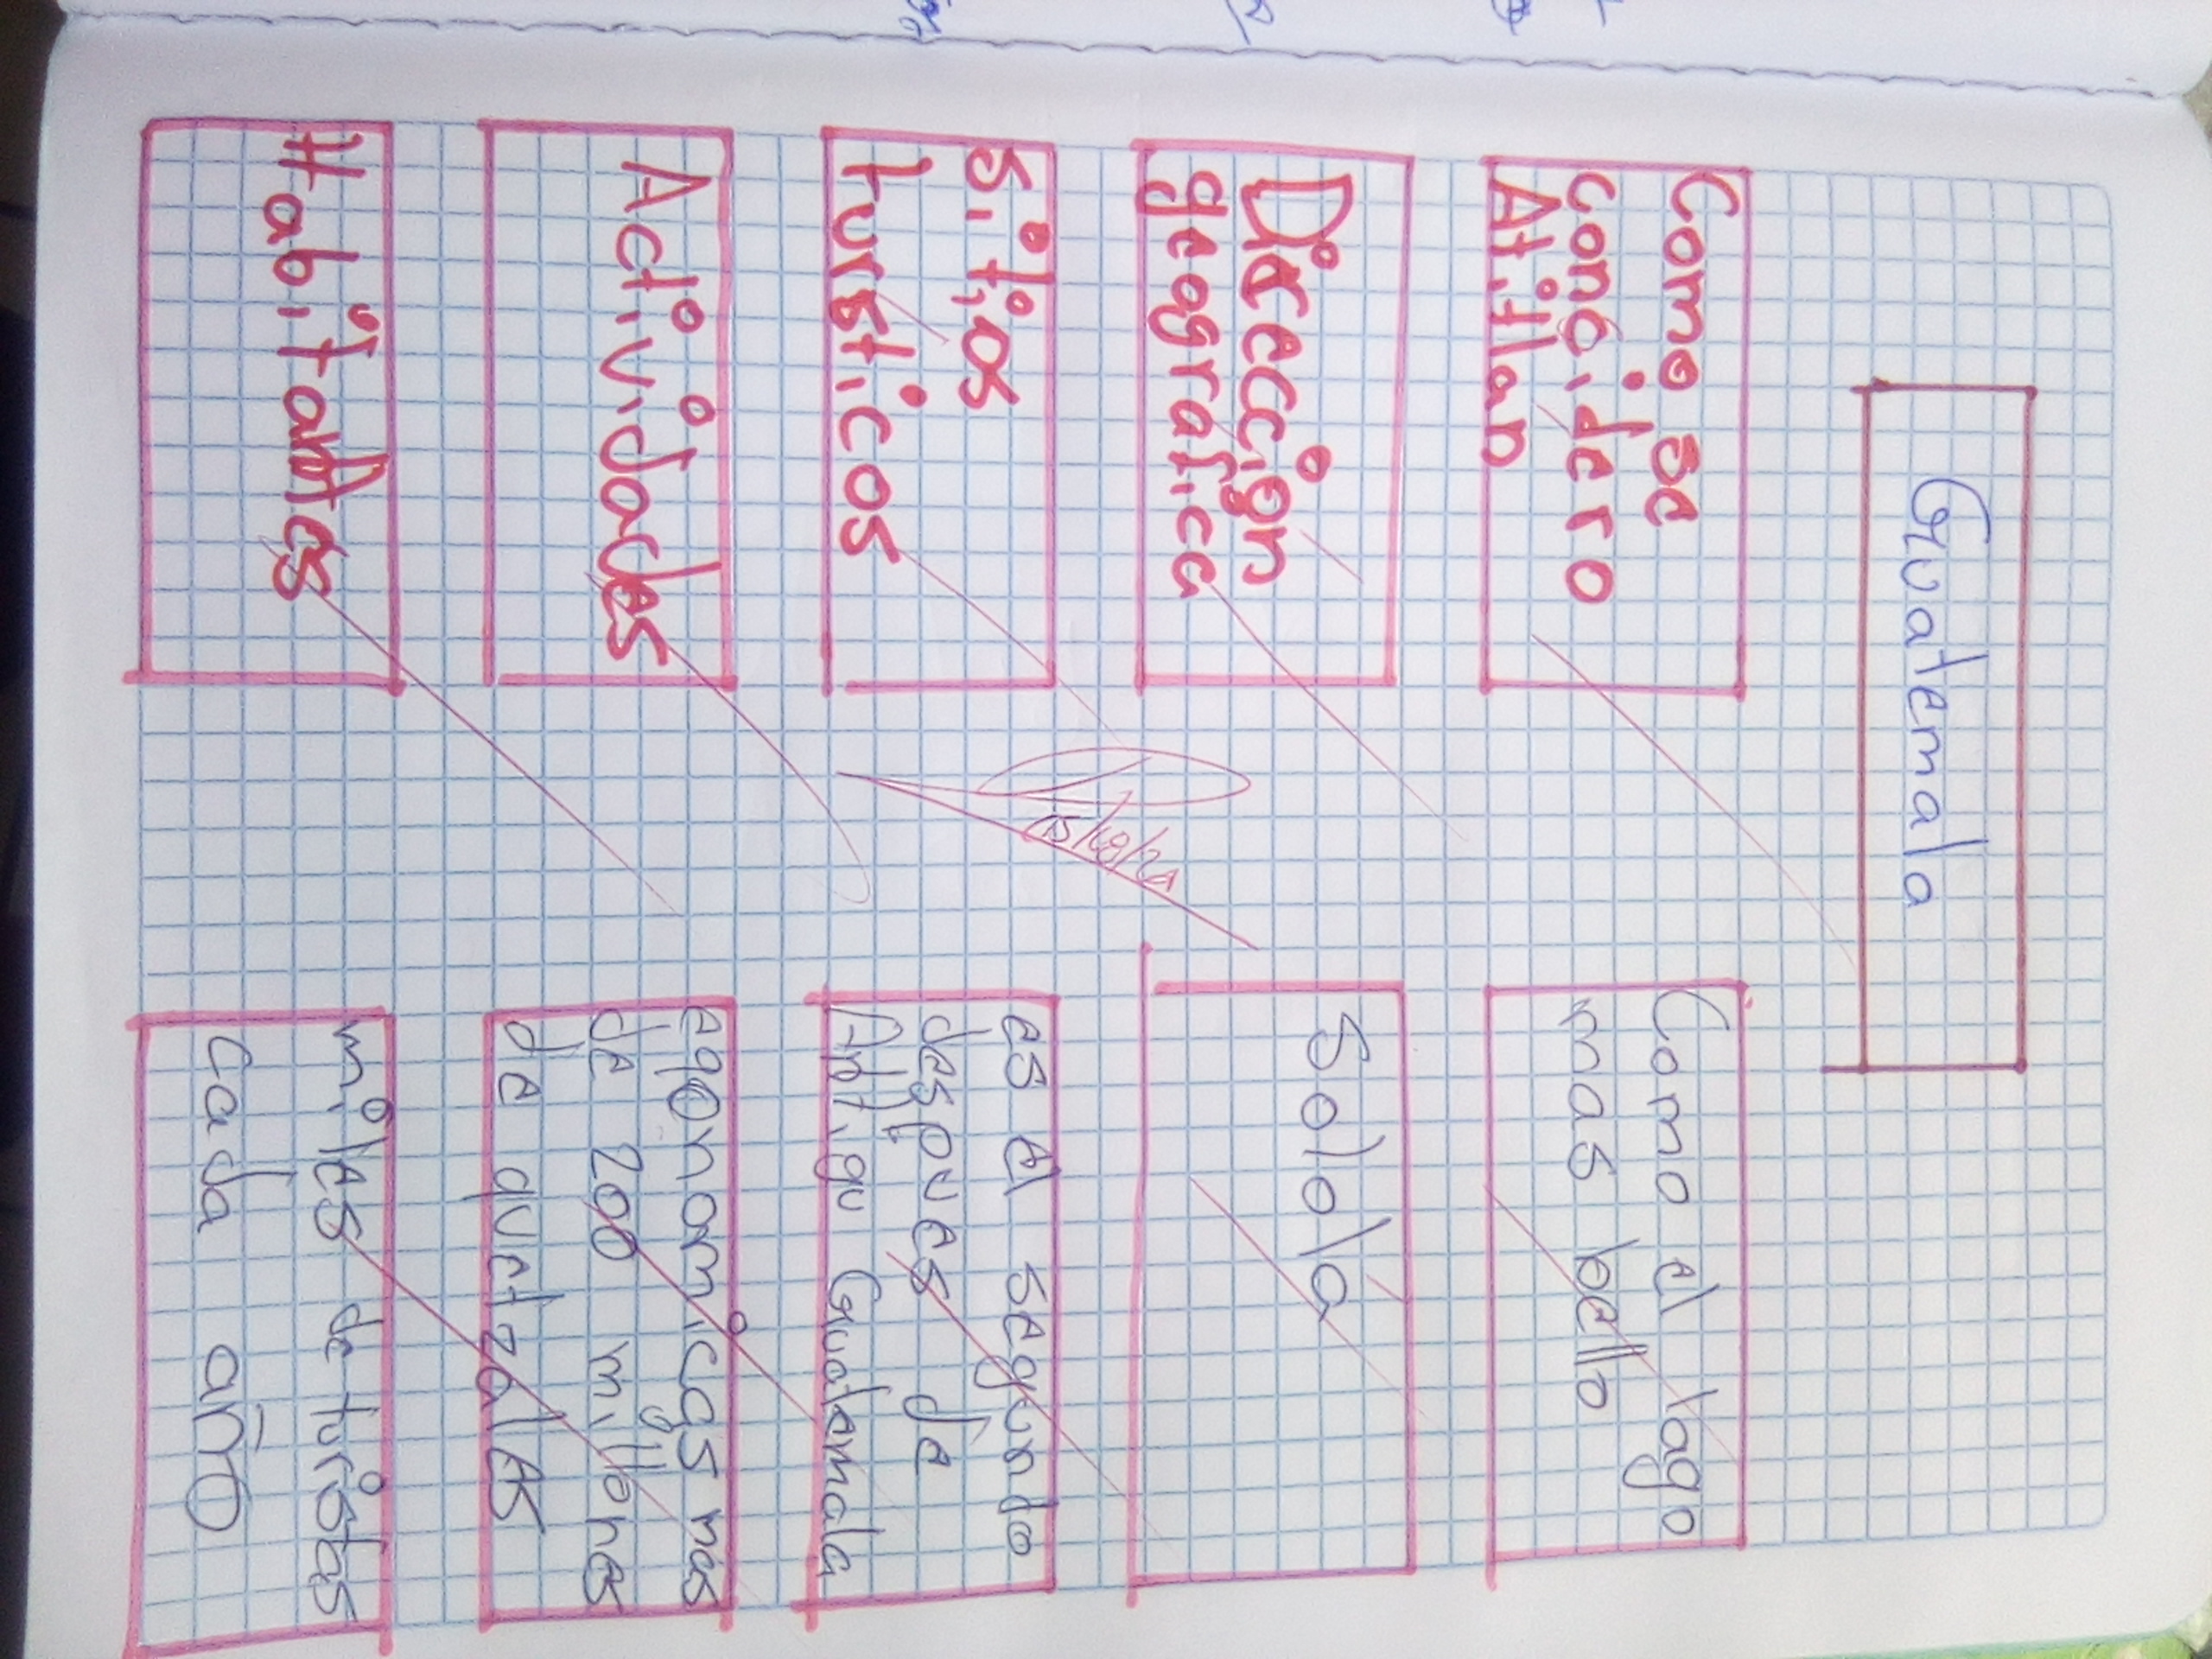 Guatemala
Como se
conoidero
Atitlan
Como el lago
mas bello
Direccion
geografica
Solola
Sitios
tursticos
es el segundo
despues de
Antigu Guatemala
Actividades
eqonomicas mas
de 200 millones
de quetzales
Habitantes
miles de turistas
cada año